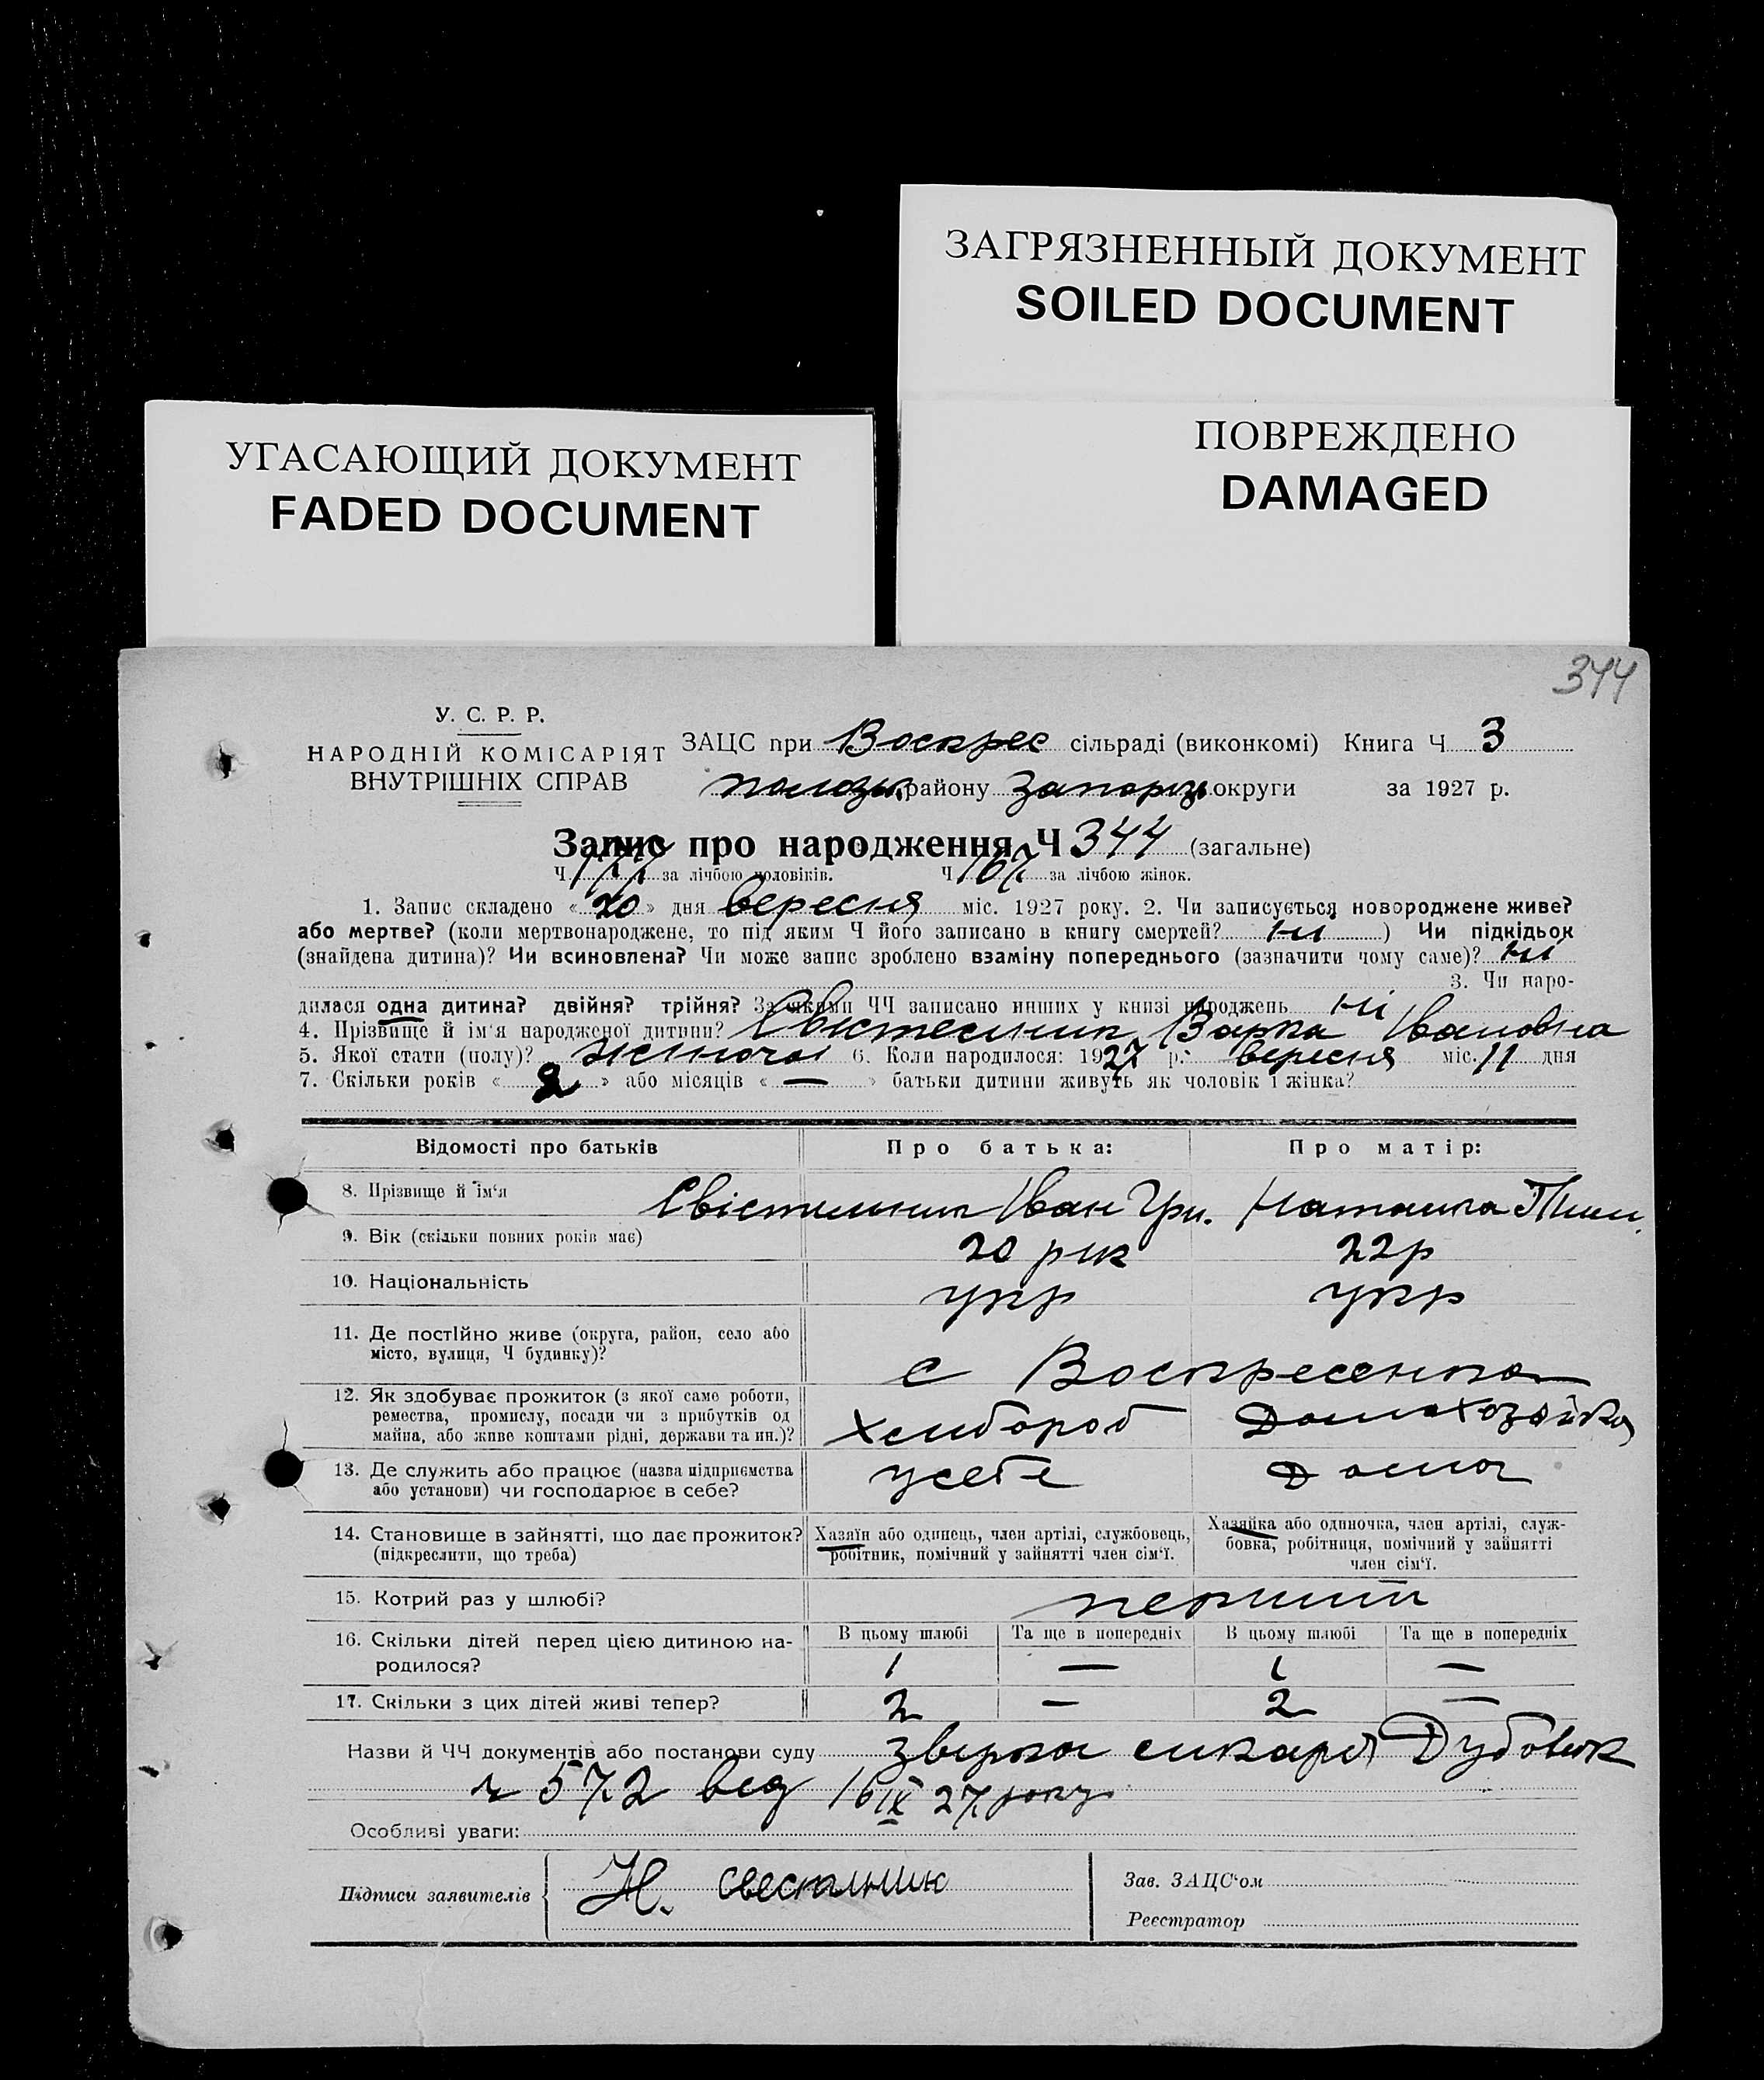 ЗАГРЯЗНЕННЫЙ ДОКУМЕНТ
SOILED DOCUMENT
ПОВРЕЖДЕНО
DAMAGED
УГАСАЮЩИЙ ДОКУМЕНТ
FADED DOCUMENT
344
У. С. Р. Р.
НАРОДНІЙ КОМІСАРІЯТ
ВНУТРІШНІХ СПРАВ
ЗАЦС при Воскрес сільраді (виконкомі) Книга Ч 3
району Запоріз округи за 1927 р.
Запис про народження Ч 344 (загальне)
Ч 177 за лічбою чоловіків. Ч 167 за лічбою жінок.
1. Запис складено « 20 » дня вересня міс. 1927 року. 2. Чи записується новороджене живе?
або мертве? (коли мертвонароджене, то під яким Ч його записано в книгу смертей? ні ) Чи підкідьок
(знайдена дитина)? Чи всиновлена? Чи може запис зроблено взаміну попереднього (зазначити чому саме)? ні
3. Чи наро-
дилася одна дитина? двійня? трійня? За якими ЧЧ записано инших у книзі народжень ні
4. Прізвище й ім'я народженої дитини? Варка Івановна
5. Якої стати (полу)? жіночої 6. Коли народилося: 1927 р. вересня міс. 11 дня
7. Скільки років « 2 » або місяців « — » батьки дитини живуть як чоловік і жінка?
Відомості про батьків Про батька: Про матір:
8. Прізвище й ім'я Іван Гри. Наташка Тим.
9. Вік (скільки повних років має) 20 рик 22р
10. Національність укр укр
11. Де постійно живе (округа, район, село або
місто, вулиця, Ч будинку)?
с Воскресенка
12. Як здобуває прожиток (з якої саме роботи,
ремества, промислу, посади чи з прибутків од
майна, або живе коштами рідні, держави та ин.)?
Хлибороб Домохозяйка
13. Де служить або працює (назва підприємства
або установи) чи господарює в себе?
усебе Дома
14. Становище в зайнятті, що дає прожиток?
(підкреслити, що треба)
Хазяїн або одинець, член артілі, службовець,
робітник, помічний у зайнятті член сім'ї.
Хазяйка або одиночка, член артілі, служ-
бовка, робітниця, помічний у зайнятті
член сім'ї.
15. Котрий раз у шлюбі? перший
16. Скільки дітей перед цією дитиною на-
родилося?
В цьому шлюбі Та ще в попередніх В цьому шлюбі Та ще в попередніх
1 — 1 —
17. Скільки з цих дітей живі тепер? 2 — 2 —
Назви й ЧЧ документів або постанови суду
572 від 16 IX 27 року
Особливі уваги:
Підписи заявителів Н. Свестильник
Зав. ЗАЦС'ом
Реєстратор